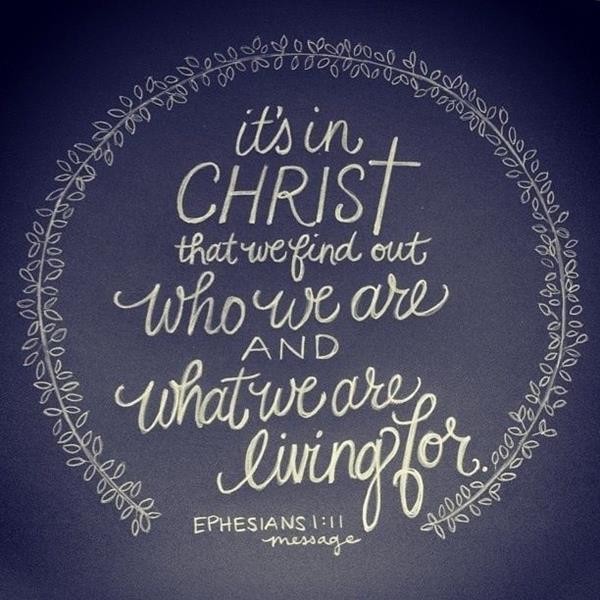 it's in
CHRIST
that we find out
who we are
AND
what we are
living for.
EPHESIANS 1:11
message